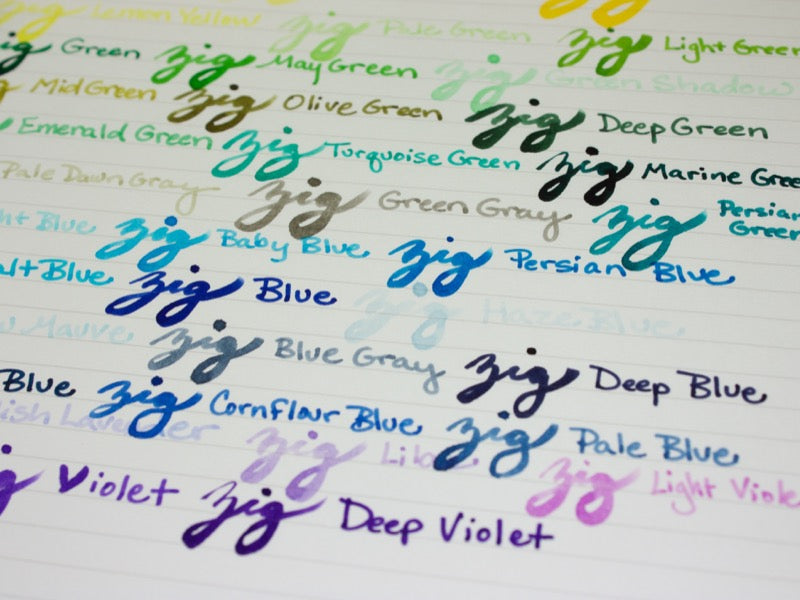 zig Lemon Yellow zig Pale Green zig Light Green
ig Green zig May Green zig Green Shadow
Mid Green zig Olive Green zig Deep Green
Emerald Green zig Turquoise Green zig Marine Gree
Pale Dawn Gray zig Green Gray zig Persian
Green
ht Blue zig Baby Blue zig Persian Blue
alt Blue zig Blue zig Haze Blue
w Mauve zig Blue Gray zig Deep Blue
Blue zig Cornflour Blue zig Pale Blue
ish Lavender zig Lilac zig Light Viole
Violet zig Deep Violet